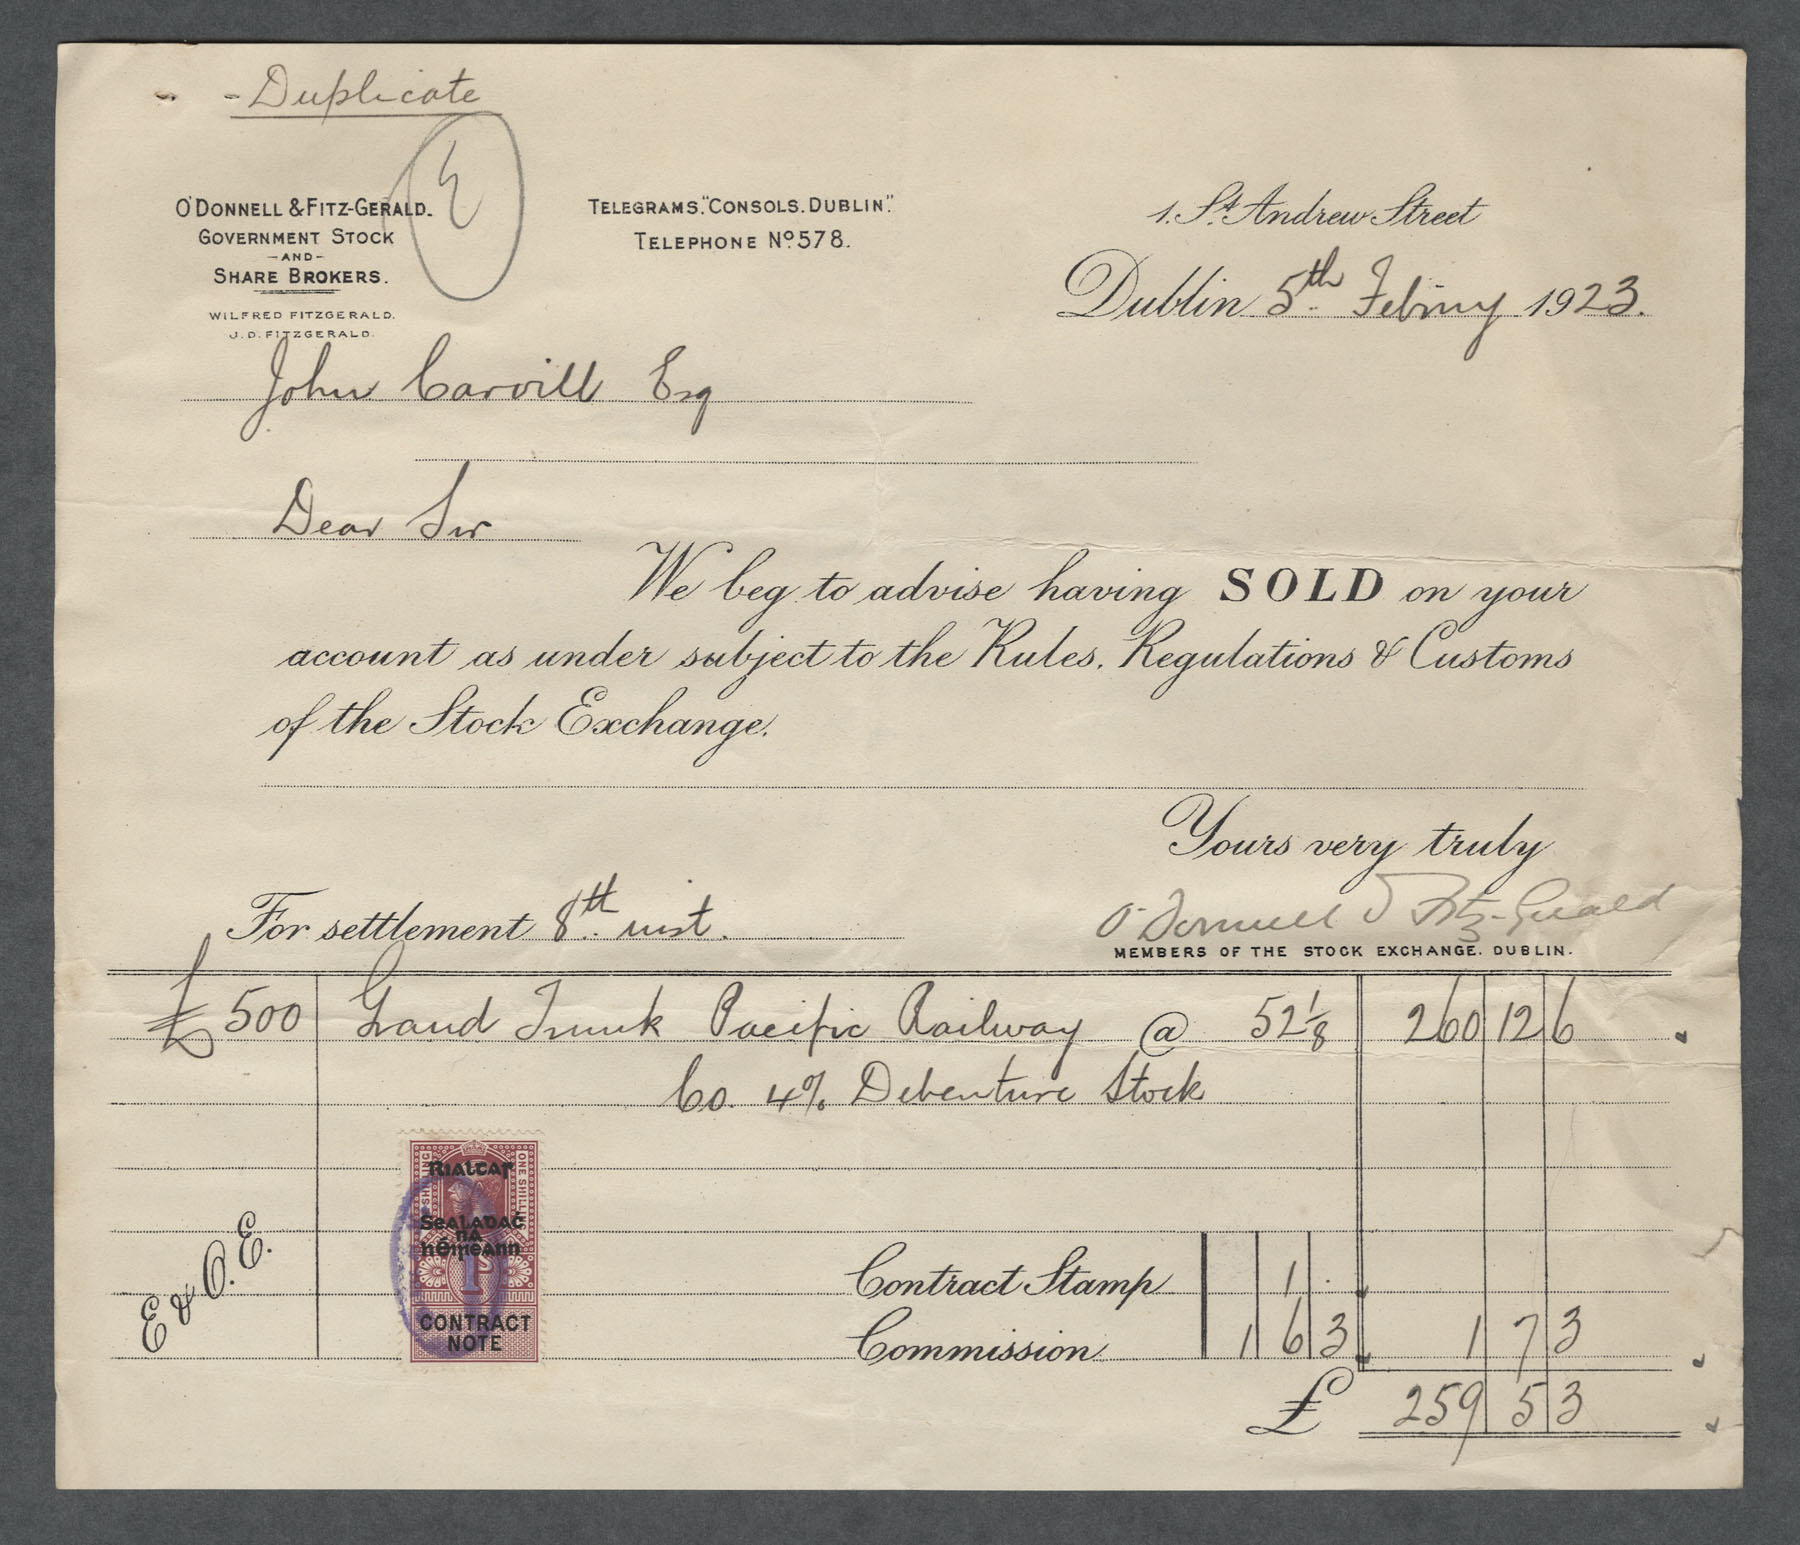 - Duplicate
O'DONNELL & FITZ-GERALD.
GOVERNMENT STOCK
- AND -
SHARE BROKERS.
WILFRED FITZGERALD.
J.D. FITZGERALD.
TELEGRAMS: "CONSOLS. DUBLIN."
TELEPHONE No 578.
1. St. Andrew Street
Dublin 5th Febry 1923.
John Carvill Esq
Dear Sir
We beg to advise having SOLD on your
account as under subject to the Rules, Regulations & Customs
of the Stock Exchange.
Yours very truly
O'Donnell & Fitz-Gerald
MEMBERS OF THE STOCK EXCHANGE. DUBLIN.
For settlement 8th inst.
£500 Grand Trunk Pacific Railway @ 52 1/8 260 12 6
Co. 4% Debenture Stock
ONE SHILLING
Rialtar
Sealadaċ
na
hÉireann
1S
CONTRACT
NOTE
E & O. E.
Contract Stamp 1 .
Commission 1 6 3 1 7 3
£ 259 5 3